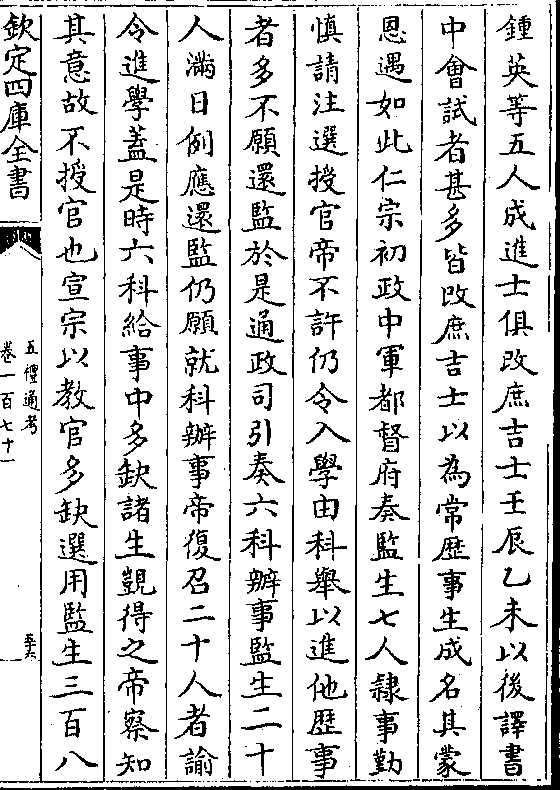 鍾英等五人成進士俱改庶吉士壬辰乙未以後譯書
中會試者甚多皆改庶吉士以為常歴事生成名其蒙
恩遇如此仁宗初政中軍都督府奏監生七人隸事勤
慎請注選授官帝不許仍令入學由科舉以進他歴事
者多不願還監於是通政司引奏六科辦事監生二十
人滿日例應還監仍願就科辦事帝復召二十人者諭
令進學蓋是時六科給事中多缺諸生覬得之帝察知
其意故不授官也宣宗以教官多缺選用監生三百八
欽定四庫全書
五禮通考
卷一百七十一